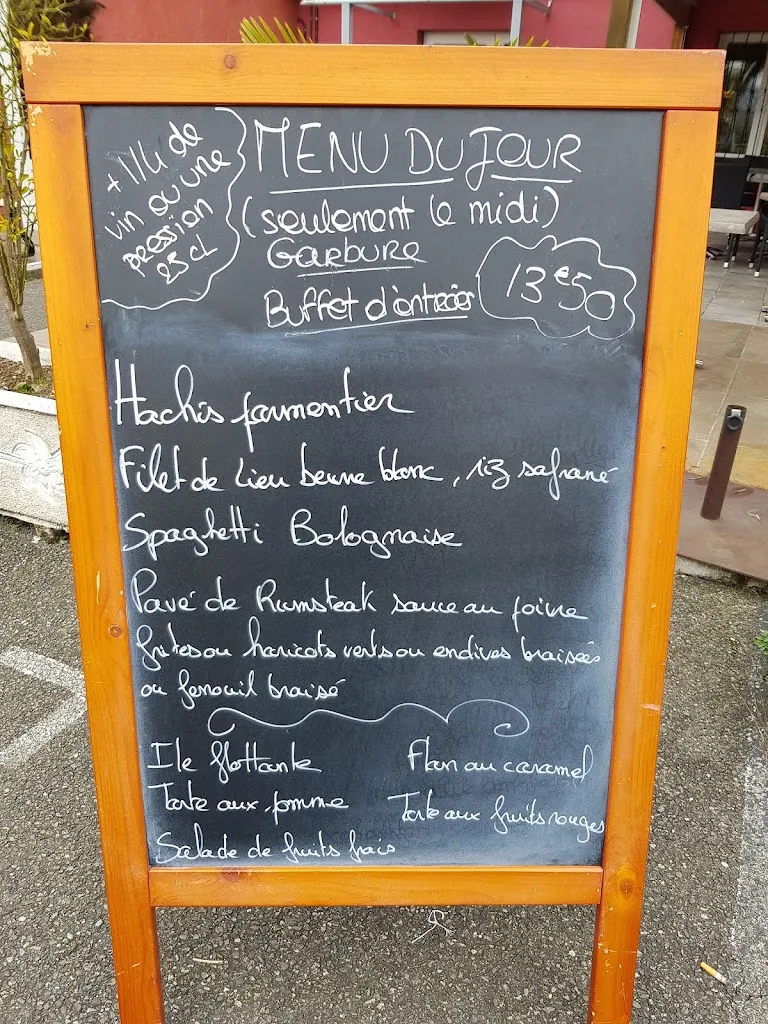 + 1/4 de
vin ou une
pression
25 cL
MENU DU JOUR
(seulement le midi)
GARBURE
Buffet d'entrées
13€50
Hachis parmentier
Filet de Lieu beurre blanc, riz safrané
Spaghetti Bolognaise
Pavé de Rumsteak sauce au poivre
frites ou haricots verts ou endives braisées
ou fenouil braisé
Ile flottante
Flan au caramel
Tarte aux pomme
Tarte aux fruits rouges
Salade de fruits frais